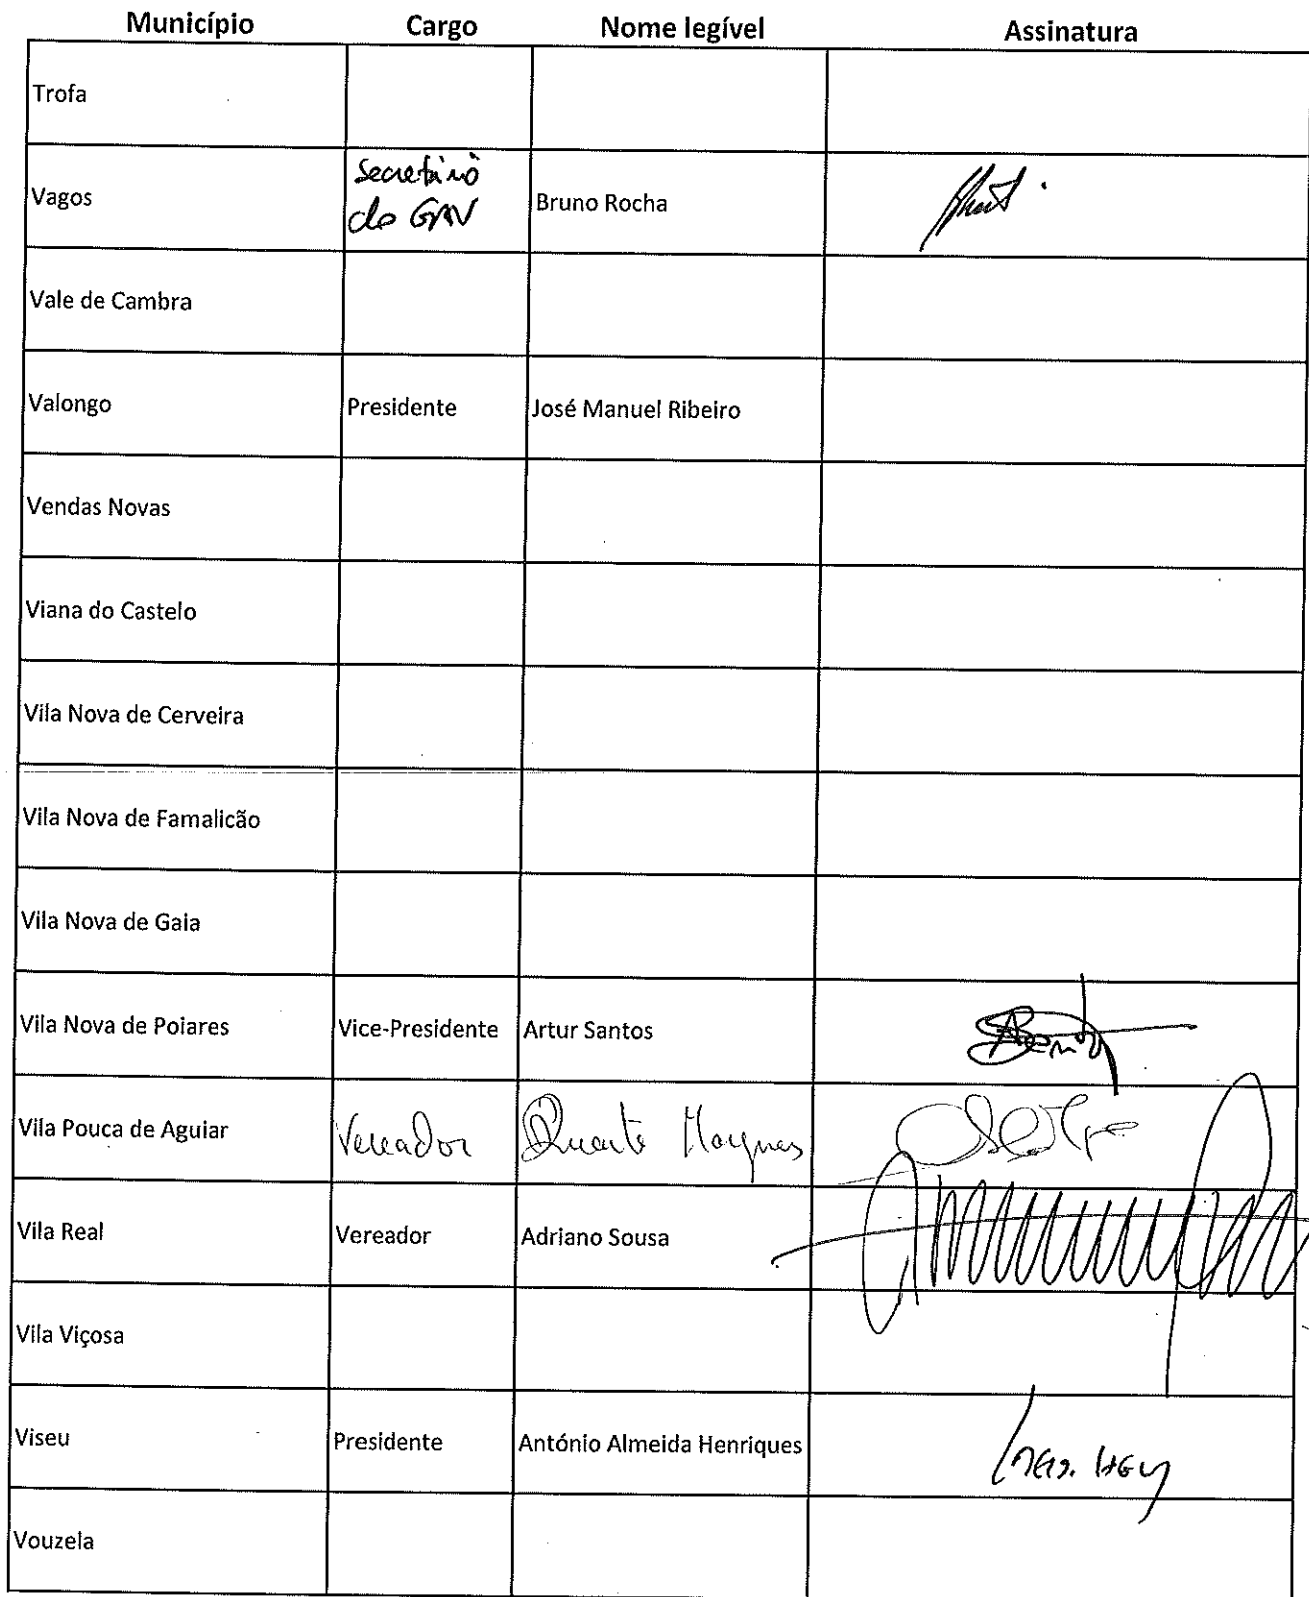 Município Cargo Nome legível Assinatura
Trofa
Vagos Secretário do GAV Bruno Rocha
Vale de Cambra
Valongo Presidente José Manuel Ribeiro
Vendas Novas
Viana do Castelo
Vila Nova de Cerveira
Vila Nova de Famalicão
Vila Nova de Gaia
Vila Nova de Poiares Vice-Presidente Artur Santos
Vila Pouca de Aguiar Vereador Duarte Marques
Vila Real Vereador Adriano Sousa
Vila Viçosa
Viseu Presidente António Almeida Henriques
Vouzela